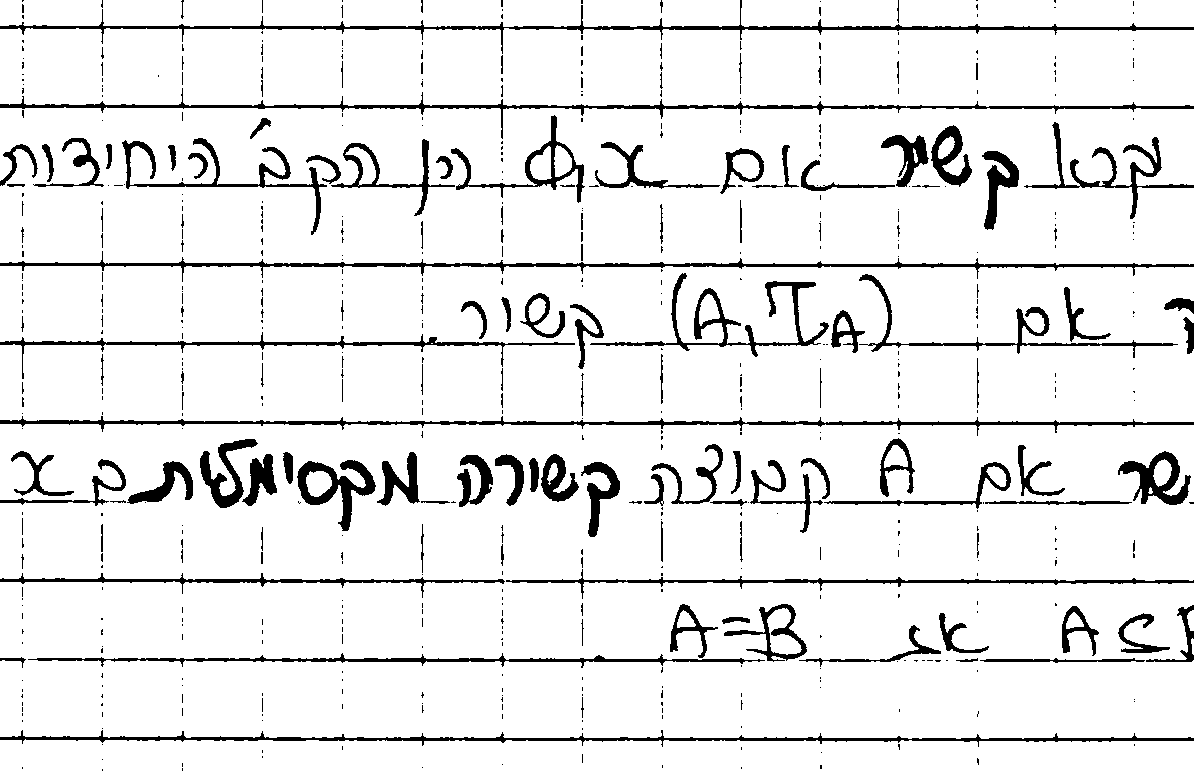 נקרא קשיר אם X,∅ הן הקב' היחידות
אם (A,T_A) קשור.
שר אם A קבוצה קשורה מקסימלית ב X
A⊆B אז A=B